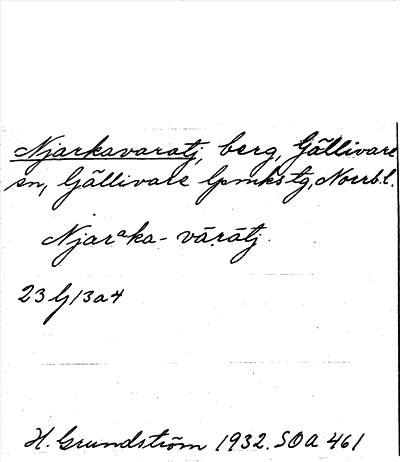 Njarkavaratj, berg, Gällivare
sn, Gällivare lpmkstg, Norrb.l.
Njarᵃka-vāṛātj.
23 G 13 a 4
H. Grundström 1932. SOA 461